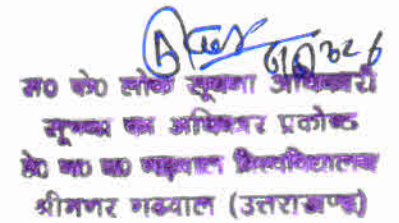 स० के० लोक सूचना अधिकारी
सूचना का अधिकार प्रकोष्ठ
हे० न० ब० गढ़वाल विश्वविद्यालय
श्रीनगर गढवाल (उत्तराखण्ड)